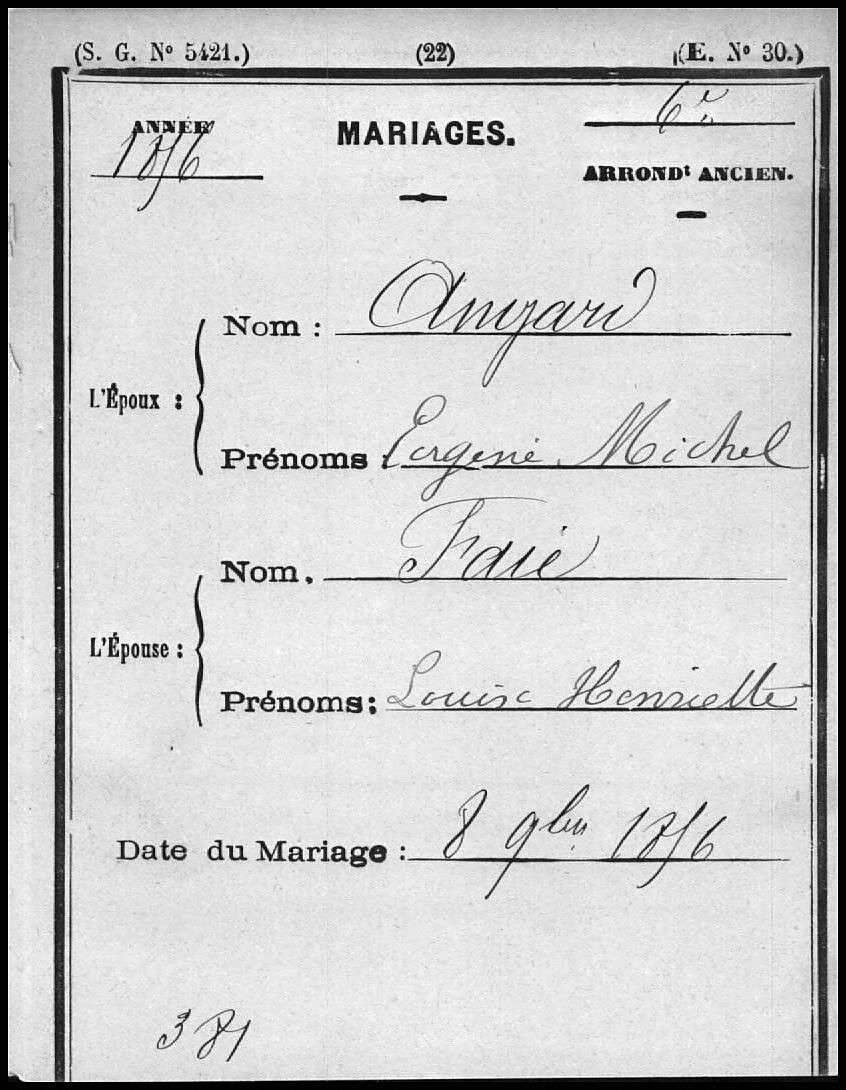 (S. G. N° 5421.) (22) (E. N° 30.)
ANNÉE MARIAGES. 6e
1856 ARRONDt ANCIEN.
L'Époux :
Nom : Amyard
Prénoms Eugene Michel
L'Épouse :
Nom. Faié
Prénoms: Louise Henriette
Date du Mariage : 8 9bre 1856
381